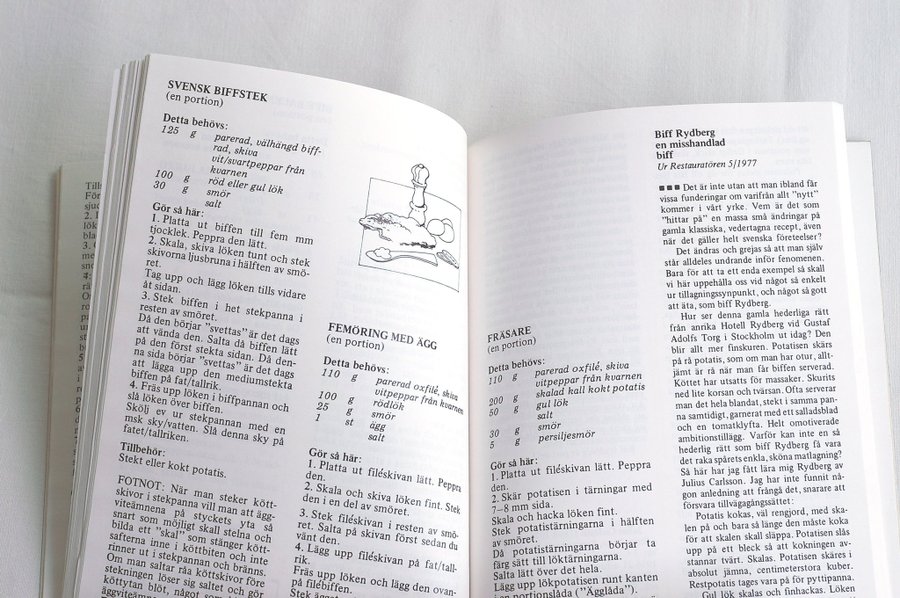 SVENSK BIFFSTEK
(en portion)
Detta behövs:
125 g parerad, välhängd biff-
rad, skiva
vit/svartpeppar från
kvarnen
100 g röd eller gul lök
30 g smör
salt
Gör så här:
1. Platta ut biffen till fem mm
tjocklek. Peppra den lätt.
2. Skala, skiva löken tunt och stek
skivorna ljusbruna i hälften av smö-
ret.
Tag upp och lägg löken tills vidare
åt sidan.
3. Stek biffen i het stekpanna i
resten av smöret.
Då den börjar "svettas" är det dags
att vända den. Salta då biffen lätt
på den först stekta sidan. Då den-
na sida börjar "svettas" är det dags
att lägga upp den mediumstekta
biffen på fat/tallrik.
4. Fräs upp löken i biffpannan och
slå löken över biffen.
Skölj ev ur stekpannan med en
msk sky/vatten. Slå denna sky på
fatet/tallriken.
Tillbehör:
Stekt eller kokt potatis.
FOTNOT: När man steker kött-
skivor i stekpanna vill man att ägg-
viteämnena på styckets yta så
snart som möjligt skall stelna och
bilda ett "skal" som stänger kött-
safterna inne i köttbiten och inte
rinner ut i stekpannan och bränns.
Om man saltar råa köttskivor före
stekningen löser sig saltet och gör
köttytan blöt, något som
FEMÖRING MED ÄGG
(en portion)
Detta behövs:
110 g parerad oxfilé, skiva
vitpeppar från kvarnen
100 g rödlök
25 g smör
1 st ägg
salt
Gör så här:
1. Platta ut filéskivan lätt. Peppra
den.
2. Skala och skiva löken fint. Stek
den i en del av smöret.
3. Stek filéskivan i resten av smö-
ret. Salta på skivan först sedan du
vänt den.
4. Lägg upp filéskivan på fat/tall-
rik.
Fräs upp löken och lägg den ovan-
på filébiffen.
Stek ägget
FRÄSARE
(en portion)
Detta behövs:
110 g parerad oxfilé, skiva
vitpeppar från kvarnen
200 g skalad kall kokt potatis
50 g gul lök
salt
30 g smör
5 g persiljesmör
Gör så här:
1. Platta ut filéskivan lätt. Peppra
den.
2. Skär potatisen i tärningar med
7–8 mm sida.
Skala och hacka löken fint.
Stek potatistärningarna i hälften
av smöret.
Då potatistärningarna börjar ta
färg sätt till löktärningarna.
Salta lätt över det hela.
Lägg upp lökpotatisen runt kanten
i en portionslåda ("Ägglåda").
Biff Rydberg
en misshandlad
biff
Ur Restauratören 5/1977
■■■ Det är inte utan att man ibland får
vissa funderingar om varifrån allt "nytt"
kommer i vårt yrke. Vem är det som
"hittar på" en massa små ändringar på
gamla klassiska, vedertagna recept, även
när det gäller helt svenska företeelser?
Det ändras och grejas så att man själv
står alldeles undrande inför fenomenen.
Bara för att ta ett enda exempel så skall
vi här uppehålla oss vid något så enkelt
ur tillagningssynpunkt, och något så gott
att äta, som biff Rydberg.
Hur ser denna gamla hederliga rätt
från anrika Hotell Rydberg vid Gustaf
Adolfs Torg i Stockholm ut idag? Den
blir allt mer finskuren. Potatisen skärs
på rå potatis, som om man har otur, allt-
jämt är rå när man får biffen serverad.
Köttet har utsatts för massaker. Skurits
ned lite korsan och tvärsan. Ofta serverar
man det hela blandat, stekt i samma panna
samtidigt, garnerat med ett salladsblad
och en tomatklyfta. Helt omotiverade
ambitionstillägg. Varför kan inte en så
hederlig rätt som biff Rydberg få vara
det raka spårets enkla, sköna matlagning?
Så här har jag fått lära mig Rydberg av
Julius Carlsson. Jag har inte funnit nå-
gon anledning att frångå det, snarare att
försvara tillvägagångsättet:
Potatis kokas, väl rengjord, med ska-
len på och bara så länge den måste koka
för att skalen skall släppa. Potatisen slås
upp på ett bleck så att kokningen av-
stannar tvärt. Skalas. Potatisen skäres i
absolut jämna, centimeterstora kuber.
Restpotatis tages vara på för pyttipanna.
Gul lök skalas och finhackas. Löken